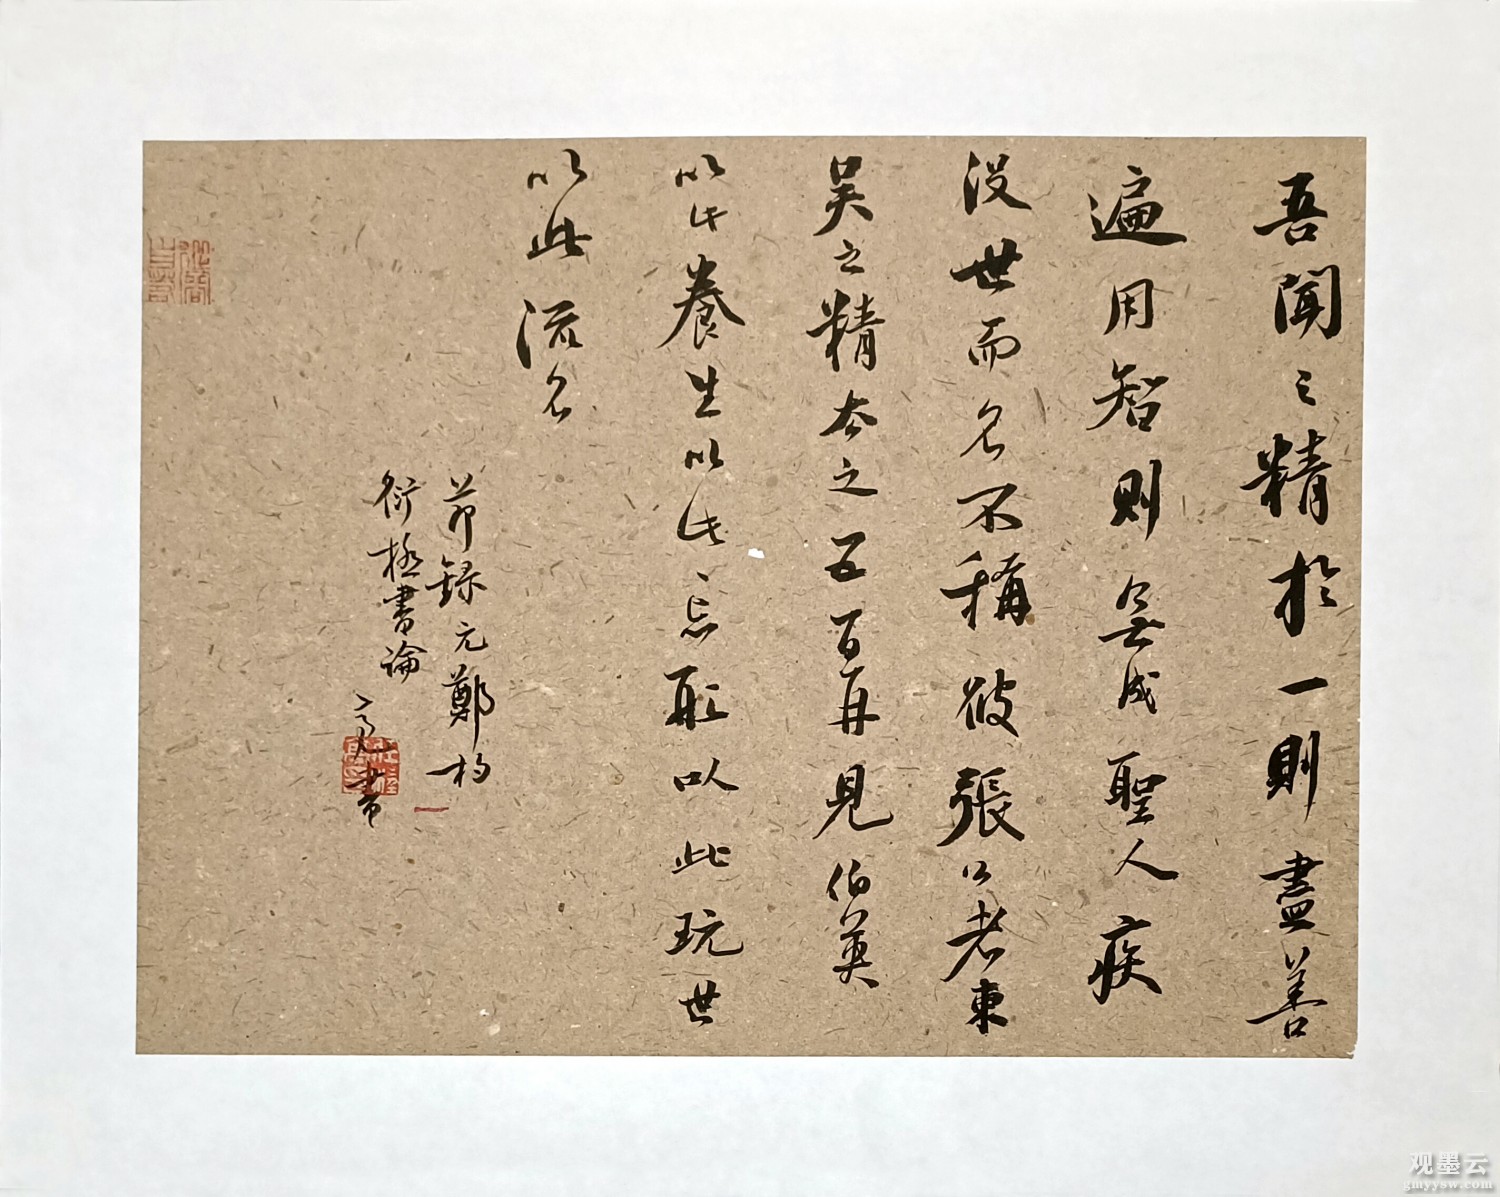 吾聞之精於一則盡善
遍用智則無成聖人疾
没世而名不稱彼張公老東
吴之精去之五百再見伯英
以此養生以此忘形以此玩世
以此流名
節録元鄭杓
衍極書論
書
观墨云
gmyysw.com